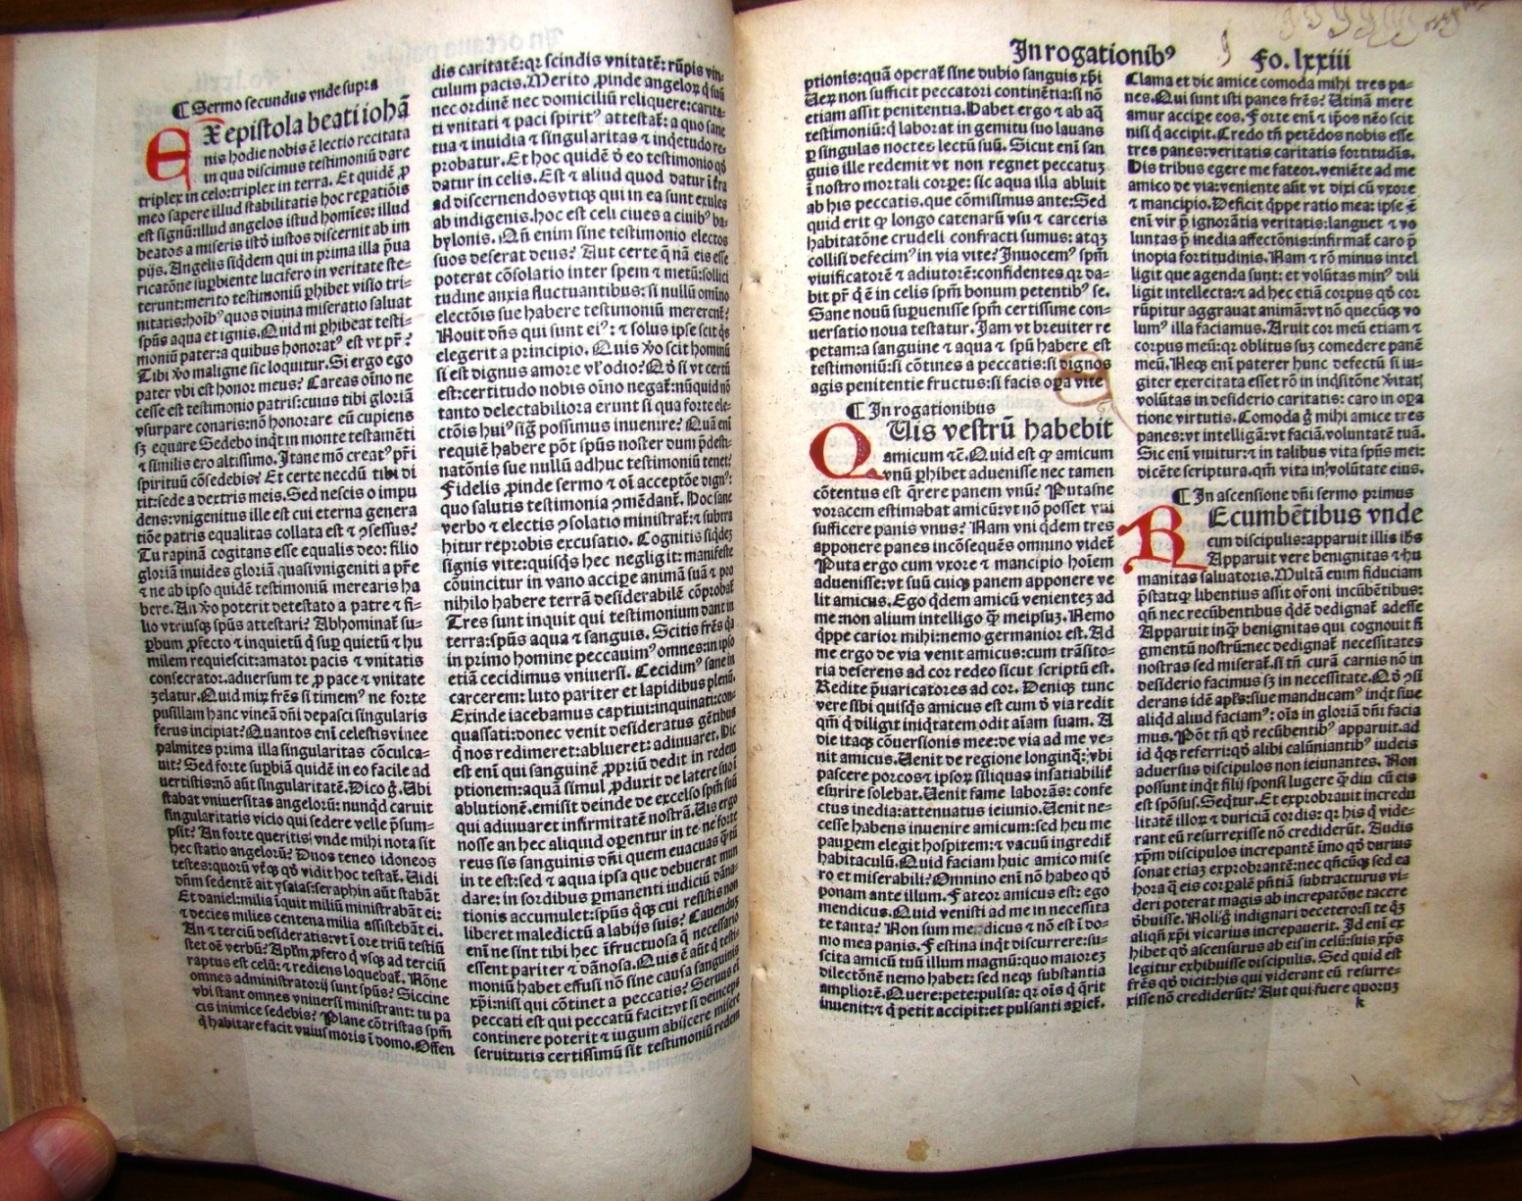 ¶ Sermo secundus vnde supra
EX epistola beati iohā
nis hodie nobis ē lectio recitata
in qua discimus testimoniū dare
triplex in celo: triplex in terra. Et quidē ꝑ
meo sapere illud stabilitatis hoc reꝑatiōis
est signū: illud angelos istud homīes: illud
beatos a miseris istd̄ iustos discernit ab im
pijs. Angelis siq̇dem qui in prima illa p̄ua
ricatōne suꝑbiente lucifero in veritate ste-
terunt: merito testimoniū ꝑhibet visio tri-
nitatis: hoībꝰ quos diuina miseratio saluat
spūs aqua et ignis. Quid ni ꝑhibeat testi-
moniū pater: a quibus honoratꝰ est vt pr̄?
Tibi v̊o maligne sic loquitur. Si ergo ego
pater vbi est honor meus? Careas oīno ne
cesse est testimonio patris: cuius tibi gloriā
vsurpare conaris: nō honorare eū cupiens
sꝫ equare Sedebo inq̇t in monte testamēti
⁊ similis ero altissimo. Itane mō creatꝰ pr̄i
spirituū cōsedebis? Et certe necdū tibi di
xit: sede a dextris meis. Sed nescis o impu
dens: vnigenitus ille est cui eterna genera
tiōe patris equalitas collata est ⁊ ꝯsessus?
Tu rapinā cogitans esse equalis deo: filio
gloriā inuides gloriā quasi vnigeniti a pr̄e
⁊ ne ab ipso quidē testimoniū merearis ha
bere. An v̊o poterit detestato a patre ⁊ fi-
lio vtriusqꝫ spūs attestari? Abhominat̄ su-
ꝑbum ꝓfecto ⁊ inquietū q̇ suꝑ quietū ⁊ hu
milem requiescit: amator pacis ⁊ vnitatis
consecrator. aduersum te ꝓ pace ⁊ vnitate
zelatur. Quid mirꝫ fr̄es si timemꝰ ne forte
pusillam hanc vineā dn̄i depasci singularis
ferus incipiat? Quantos eni celestis vinee
palmites prima illa singularitas cōculca-
uit? Sed forte suꝑbiā quidē in eo facile ad
uertistis: nō aūt singularitatē. Dico g̊. Ubi
stabat vniuersitas angelorū: nunqd̄ caruit
singularitatis vicio qui sedere velle p̄sum-
psit? An forte queritis: vnde mihi nota sit
hec statio angelorū? Duos teneo idoneos
testes: quorū vtꝫqꝫ qd̄ vidit hoc testat̄. Uidi
dn̄m sedentē ait ysaias: seraphin aūt stabāt
Et daniel: milia īquit miliū ministrabāt ei:
⁊ decies milies centena milia assistebāt ei.
An ⁊ terciū desideratis: vt ī ore triū testiū
stet oē verbū? Apl̄m ꝓfero q̇ vsqꝫ ad terciū
raptus est celū: ⁊ rediens loquebat̄. Nōne
omnes administratorij sunt spūs? Siccine
vbi stant omnes vniuersi ministrant: tu pa
cis inimice sedebis? Plane cōtristas spm̄
q̇ habitare facit vnius moris ī domo. Offen
dis caritatē: qꝛ scindis vnitatē: rūpis vin-
culum pacis. Merito ꝓinde angeloꝝ q̇ suū
nec ordinē nec domiciliū reliquere: carita-
ti vnitati ⁊ paci spiritꝰ attestat̄: a quo sane
tua ⁊ inuidia ⁊ singularitas ⁊ inq̇etudo re-
probatur. Et hoc quidē d̊ eo testimonio qd̄
datur in celis. Est ⁊ aliud quod datur ī t̄ra
ad discernendos vtiqꝫ qui in ea sunt exules
ab indigenis. hoc est celi ciues a ciuibꝰ ba-
bylonis. Qn̄ enim sine testimonio electos
suos deserat deus? Aut certe q̄ nā eis esse
poterat cōsolatio inter spem ⁊ metū: sollici
tudine anxia fluctuantibus: si nullū omīno
electōis sue habere testimoniū mererent̄?
Nouit dn̄s qui sunt eiꝰ: ⁊ solus ipse scit q̇s
elegerit a principio. Quis v̊o scit hominū
si est dignus amore vl̓ odio? Qd̄ si vt certū
est: certitudo nobis oīno negat̄: nūquid nō
tanto delectabiliora erunt si qua forte ele-
ctōis huiꝰ sig̊ possimus inuenire? Quā enī
requiē habere pōt spūs noster dum p̄desti-
natōnis sue nullū adhuc testimoniū tenet?
Fidelis ꝓinde sermo ⁊ oī acceptōe dignꝰ:
quo salutis testimonia ꝯmēdant̄. Hoc sane
verbo ⁊ electis ꝯsolatio ministrat̄: ⁊ subtra
hitur reprobis excusatio. Cognitis siq̇dēꝫ
signis vite: quisq̇s hec negligit: manifeste
cōuincitur in vano acciꝑe animā suā ⁊ pro
nihilo habere terrā desiderabilē cōprobat̄
Tres sunt inquit qui testimonium dant in
terra: spūs aqua ⁊ sanguis. Scitis fr̄es q̇a
in primo homine peccauimꝰ omnes: in ipso
etiā cecidimus vniuersi. Cecidimꝰ sane in
carcerem: luto pariter et lapidibus plenū.
Exinde iacebamus captiui: inquinati: con-
quassati: donec venit desideratus gētibus
q̇ nos redimeret: ablueret: adiuuaret. Hic
est enī qui sanguinē ꝓpriū dedit in redem
ptionem: aquā simul ꝓduxit de latere suo ī
ablutionē. emisit deinde de excelso spm̄ suū
qui adiuuaret infirmitatē nostrā. Uis ergo
nosse an hec aliquid oꝑentur in te: ne forte
reus sis sanguinis dn̄i quem euacuas q̄ꝫtū
in te est: sed ⁊ aqua ipsa que debuerat mun
dare: in sordibus ꝑmanenti iudiciū dāna-
tionis accumulet: spūs q̊qꝫ cui resistis non
liberet maledictū a labijs suis? Cauendū
enī ne sint tibi hec īfructuosa q̄ necessario
essent pariter ⁊ dānosa. Quis ē aūt q̇ testi-
moniū habet effusi nō sine causa sanguinis
xp̄i: nisi qui cōtinet a peccatis? Seruus ei
peccati est qui peccatū facit: vt si deinceps
continere poterit ⁊ iugum abijcere misere
seruitutis certissimū sit testimoniū redem
In rogationibꝰ Fo. lxxiii
ptionis: quā operat̄ sine dubio sanguis xp̄i
Ueꝝ non sufficit peccatori continētia: si nō
etiam assit penitentia. Habet ergo ⁊ ab aq̄
testimoniū: q̇ laborat in gemitu suo lauans
ꝑ singulas noctes lectū suū. Sicut enī san
guis ille redemit vt non regnet peccatuꝫ
ī nostro mortali corꝑe: sic aqua illa abluit
ab his peccatis. que cōmisimus ante: Sed
quid erit ꝙ longo catenarū vsu ⁊ carceris
habitatōne crudeli confracti sumus: atqꝫ
collisi defecimꝰ in via vite? Inuocemꝰ spm̄
viuificatorē ⁊ adiutorē: confidentes qꝛ da-
bit pr̄ q̇ ē in celis spm̄ bonum petentibꝰ se.
Sane nouū suꝑuenisse spm̄ certissime con-
uersatio noua testatur. Iam vt breuiter re
petam: a sanguine ⁊ aqua ⁊ spū habere est
testimoniū: si cōtines a peccatis: si dignos
agis penitentie fructus: si facis oꝑa vite
¶ In rogationibus
QUis vestrū habebit
amicum ⁊c̄. Quid est ꝙ amicum
vnū ꝑhibet aduenisse nec tamen
cōtentus est q̄rere panem vnū? Putasne
voracem estimabat amicū: vt nō posset vni
sufficere panis vnus? Nam vni q̇dem tres
apponere panes incōsequēs omnino videt̄
Puta ergo cum vxore ⁊ mancipio hoīem
aduenisse: vt suū cuiqꝫ panem apponere ve
lit amicus. Ego q̇dem amicū venienteꝫ ad
me: non alium intelligo q̄ꝫ meipsuꝫ. Nemo
q̇ppe carior mihi: nemo germanior est. Ad
me ergo de via venit amicus: cum trāsito-
ria deserens ad cor redeo sicut scriptū est.
Redite p̄uaricatores ad cor. Deniqꝫ tunc
vere sibi quisq̇s amicus est cum d̊ via redit
qm̄ q̇ diligit iniq̇tatem odit aīam suam. A
die itaqꝫ cōuersionis mee: de via ad me ve-
nit amicus. Uenit de regione longinq̄: vbi
pascere porcos ⁊ ipsoꝝ siliquas insatiabilit̄
esurire solebat. Uenit fame laborās: confe
ctus inedia: attenuatus ieiunio. Uenit ne-
cesse habens inuenire amicum: sed heu me
pauꝑem elegit hospitem: ⁊ vacuū ingredit̄
habitaculū. Quid faciam huic amico mise
ro et miserabili? Omnino enī nō habeo qd̄
ponam ante illum. Fateor amicus est: ego
mendicus. Quid venisti ad me in necessita
te tanta? Non sum mendicus ⁊ nō est ī do-
mo mea panis. Festina inq̇t discurrere: su-
scita amicū tuū illum magnū: quo maiorez
dilectōnē nemo habet: sed neqꝫ substantia
ampliorē. Quere: pete: pulsa: qꝛ oīs q̇ q̄rit
inuenit: ⁊ q̇ petit accipit: et pulsanti aꝑiet̄.
Clama et dic amice comoda mihi tres pa-
nes. Qui sunt isti panes fr̄es? Utinā mere
amur acciꝑe eos. Forte enī ⁊ ip̄os nēo scit
nisi q̇ accipit. Credo tn̄ petēdos nobis esse
tres panes: veritatis caritatis fortitudīs.
His tribus egere me fateor. veniēte ad me
amico de via: veniente aūt vt dixi cū vxore
⁊ mancipio. Deficit q̇ppe ratio mea: ipse ē
eni vir p̄ ignorātia veritatis: languet ⁊ vo
luntas p̄ inedia affectōnis: infirmat̄ caro p̄
inopia fortitudinis. Nam ⁊ rō minus intel
ligit que agenda sunt: et volūtas minꝰ dili
ligit intellecta: ⁊ ad hec etiā corpus qd̄ cor
rūpitur aggrauat animā: vt nō quecūqꝫ vo
lumꝰ illa faciamus. Aruit cor meū etiam ⁊
corpus meū: qꝛ oblitus suꝫ comedere panē
meū. Neqꝫ enī paterer hunc defectū si iu-
giter exercitata esset rō in inq̇sitōne v̓itatꝭ
volūtas in desiderio caritatis: caro in oꝑa
tione virtutis. Comoda g̊ mihi amice tres
panes: vt intelligā: vt faciā. voluntatē tuā.
Sic enī viuitur: ⁊ in talibus vita spūs mei:
dicēte scriptura. qm̄ vita in volūtate eius.
¶ In ascensione dn̄i sermo primus
REcumbētibus vnde
cim discipulis: apparuit illis ihs
Apparuit vere benignitas ⁊ hu
manitas saluatoris. Multā enim fiduciam
p̄statꝙ libentius assit or̄oni incūbētibus:
qn̄ nec recūbentibus q̇dē dedignat̄ adesse
Apparuit inq̄ꝫ benignitas qui cognouit fi
gmentū nostrū: nec dedignat̄ necessitates
nostras sed miserat̄. si tn̄ curā carnis nō in
desiderio facimus sꝫ in necessitate. Qd̄ ꝯsi
derans idē apl̄s: siue manducamꝰ inq̇t siue
aliqd̄ aliud faciamꝰ: oīa in gloriā dn̄i facia
mus. Pōt tn̄ qd̄ recūbētibꝰ apparuit. ad
id q̊qꝫ referri: qd̄ alibi calūniantibꝰ iudeis
aduersus discipulos non ieiunantes. Non
possunt inq̇t filij sponsi lugere q̄ꝫdiu cū eis
est spōsus. Seq̇tur. Et exprobrauit incredu
litatē illoꝝ ⁊ duriciā cordis: qꝛ his q̇ vide-
rant eū resurrexisse nō crediderūt. Audis
xp̄m discipulos increpantē īmo qd̄ durius
sonat etiaꝫ exprobrantē: nec q̄ꝫcūqꝫ sed ea
hora q̄ eis corꝑalē pn̄tiā subtracturus vi-
deri poterat magis ab increpatōne tacere
d̊buisse. Noli g̊ indignari decetero: si te q̄ꝫ
aliqn̄ xp̄i vicarius increpauerit. Id enī ex
hibet qd̄ ascensurus ab eis in celū: suis xp̄s
legitur exhibuisse discipulis. Sed quid est
fr̄es qd̄ dicit: his qui viderant eū resurre-
xisse nō crediderūt? Aut qui fuere quoruꝫ
k